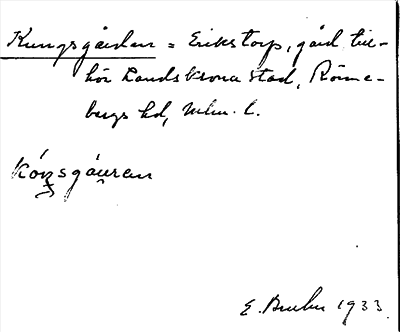 Kungsgården = Erikstorp, gård till-
hör Landskrona stad, Rönne-
bergs hd, Mlm. l.
Kóŋsgáu̯ren
E. Bruhn 1933.